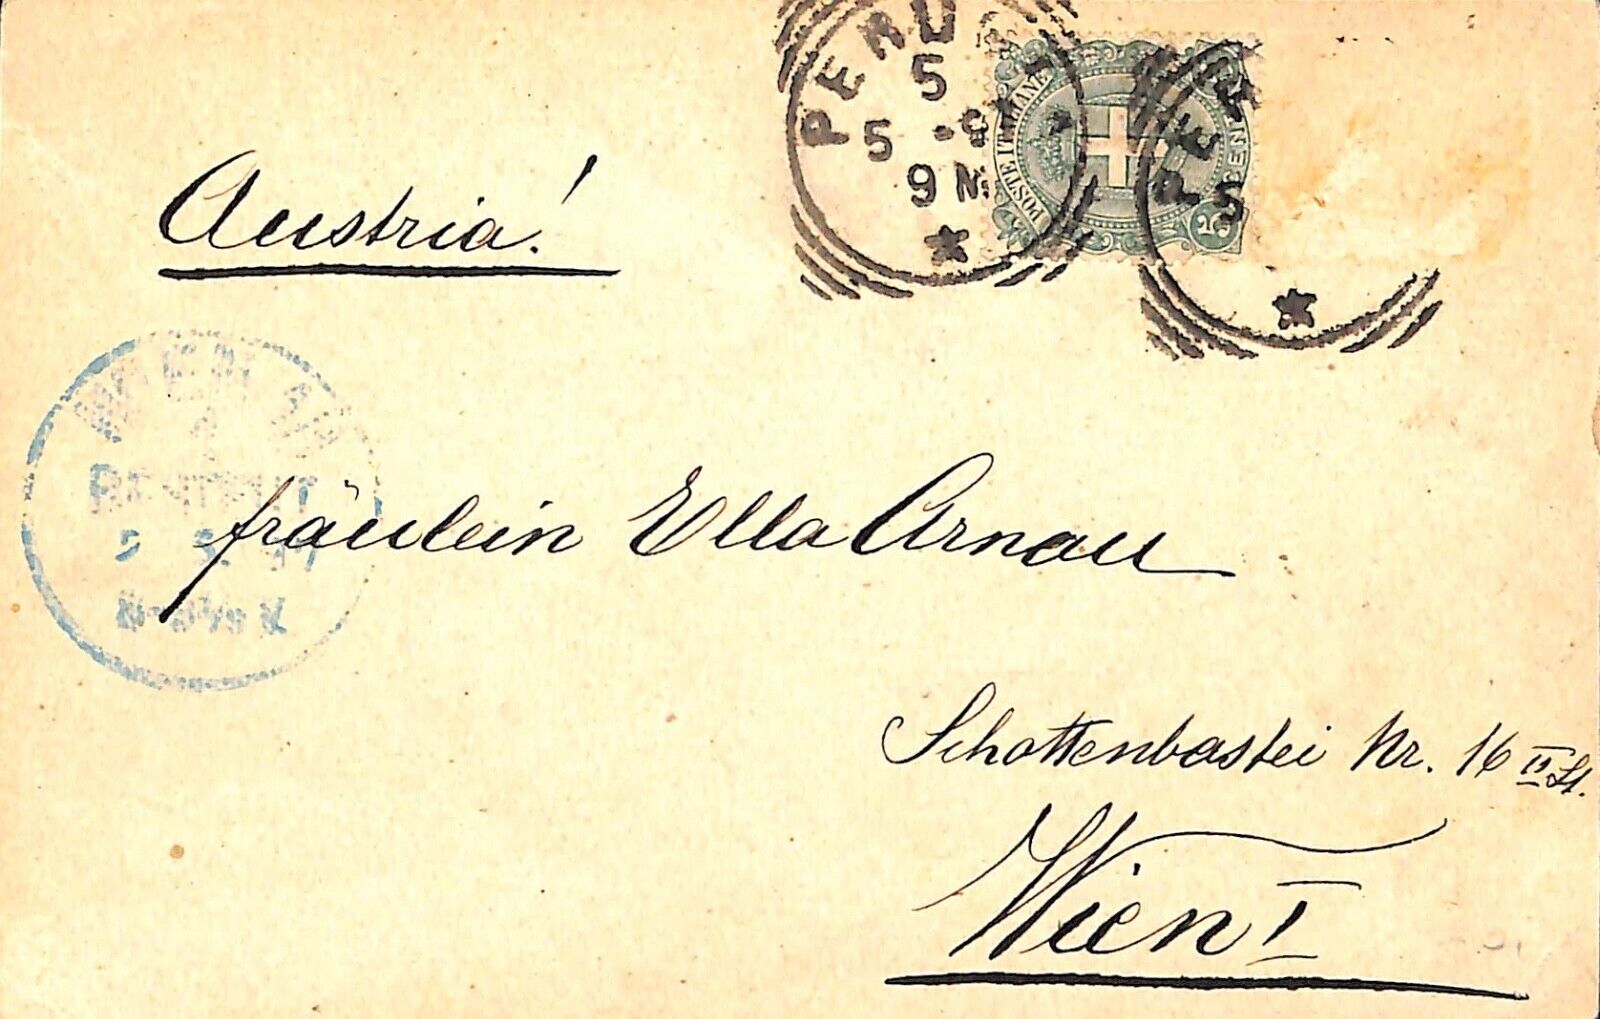 PEN
5
5
9 M
POSTE ITALIANE
CEN
PE
5
Austria!
WIEN 1/1
BESTELLT
fräulein Ella Arnau
Schottenbastei Nr. 16 II St.
Wien I